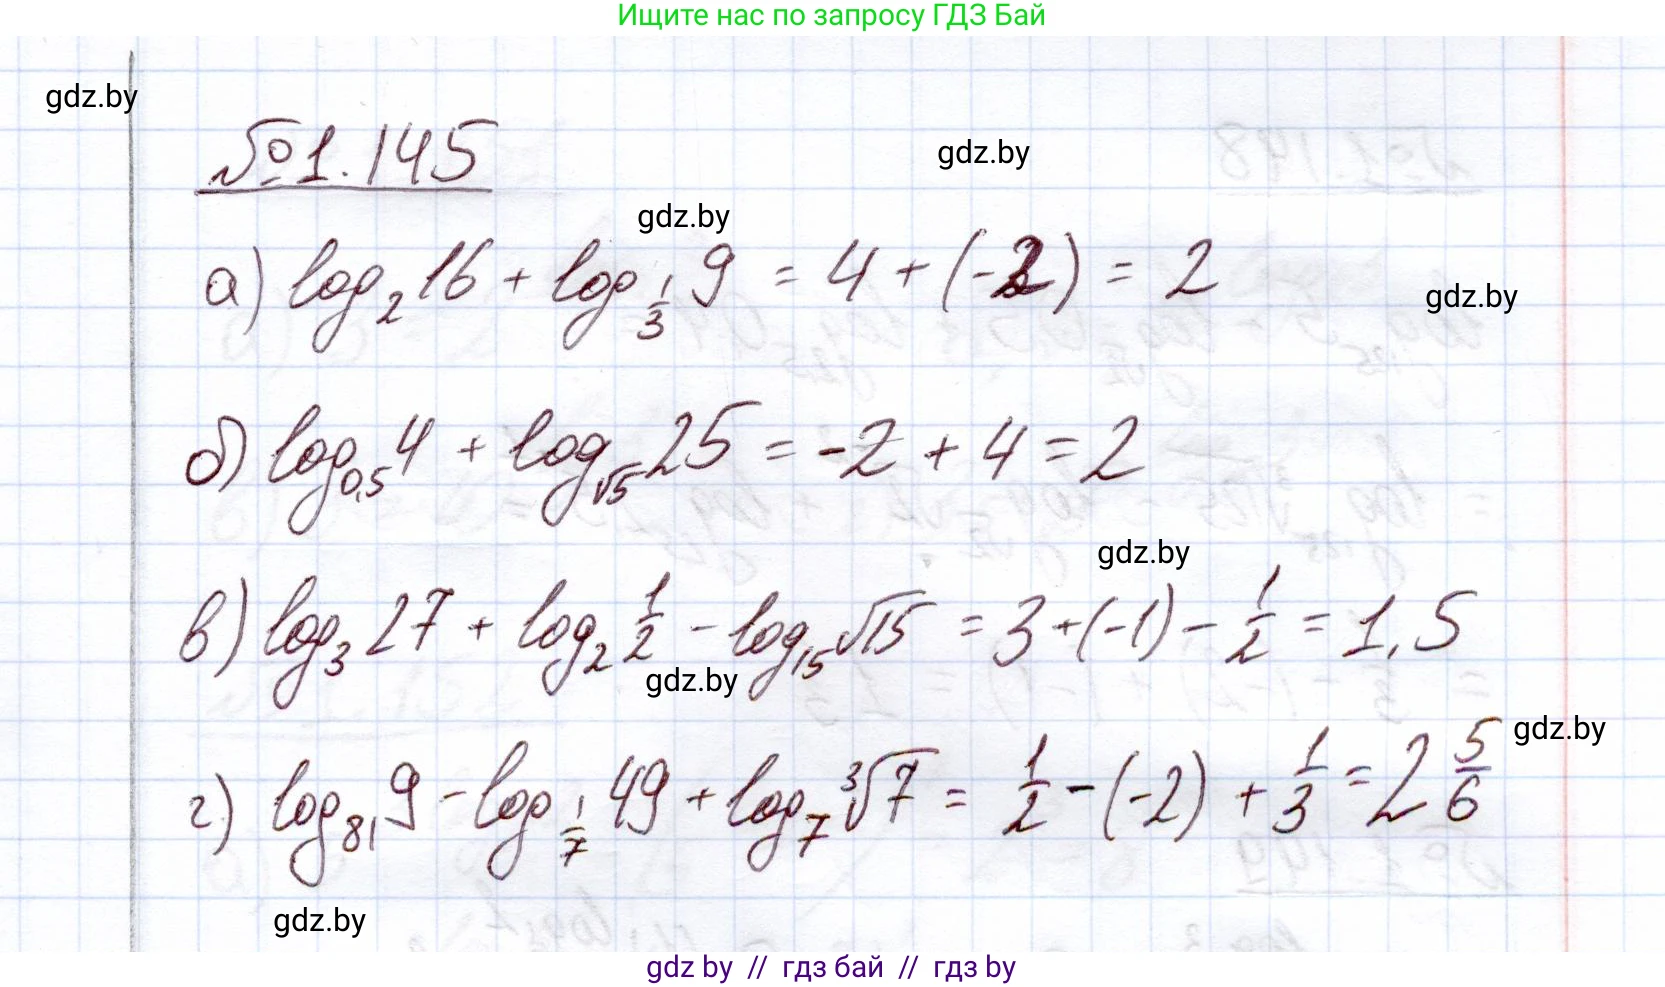 Ищите нас по запросу ГДЗ Бай
gdz.by
№1.145
gdz.by
gdz.by
а) log₂ 16 + log_{1/3} 9 = 4 + (-2) = 2
gdz.by
б) log_{0,5} 4 + log_{√5} 25 = -2 + 4 = 2
gdz.by
в) log₃ 27 + log₂ 1/2 - log₁₅ √15 = 3 + (-1) - 1/2 = 1,5
gdz.by
gdz.by
г) log₈₁ 9 - log_{1/7} 49 + log₇ ∛7 = 1/2 - (-2) + 1/3 = 2 5/6
gdz.by
gdz by // гдз бай // гдз by